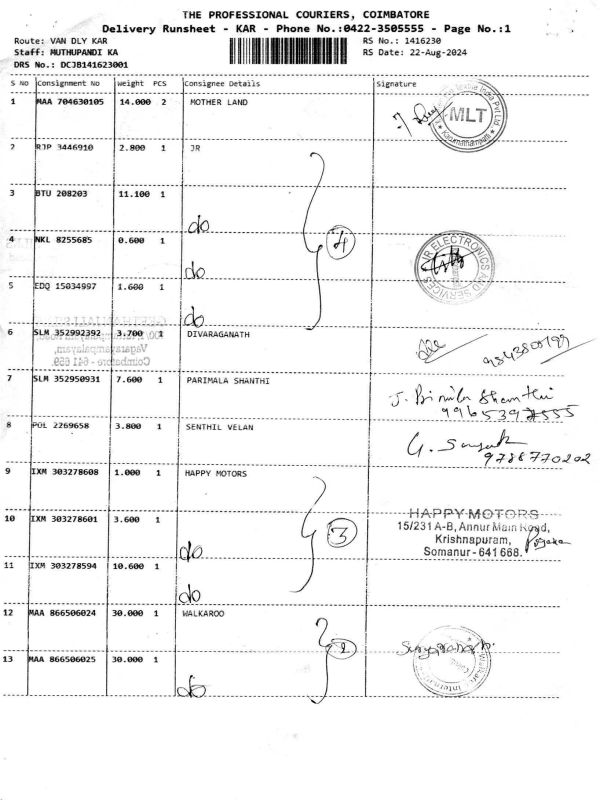 THE PROFESSIONAL COURIERS, COIMBATORE
Delivery Runsheet - KAR - Phone No.:0422-3505555 - Page No.:1
Route: VAN DLY KAR
RS No.: 1416230
Staff: MUTHUPANDI KA
RS Date: 22-Aug-2024
DRS No.: DCJB141623001
S NO Consignment No Weight PCS Consignee Details Signature
1 MAA 704630105 14.000 2 MOTHER LAND
MLT
2 RJP 3446910 2.800 1 JR
3 BTU 208203 11.100 1
do
4
4 NKL 8255685 0.600 1
JR ELECTRONICS AND SERVICES
do
5 EDQ 15034997 1.600 1
do
6 SLM 352992392 3.700 1 DIVARAGANATH
Coimbatore - 641 659.
7 SLM 352950931 7.600 1 PARIMALA SHANTHI
8 POL 2269658 3.800 1 SENTHIL VELAN
9788770202
9 IXM 303278608 1.000 1 HAPPY MOTORS
10 IXM 303278601 3.600 1
do
3
HAPPY MOTORS
15/231 A-B, Annur Main Road,
Krishnapuram,
Somanur - 641 668.
11 IXM 303278594 10.600 1
do
12 MAA 866506024 30.000 1 WALKAROO
2
13 MAA 866506025 30.000 1
do